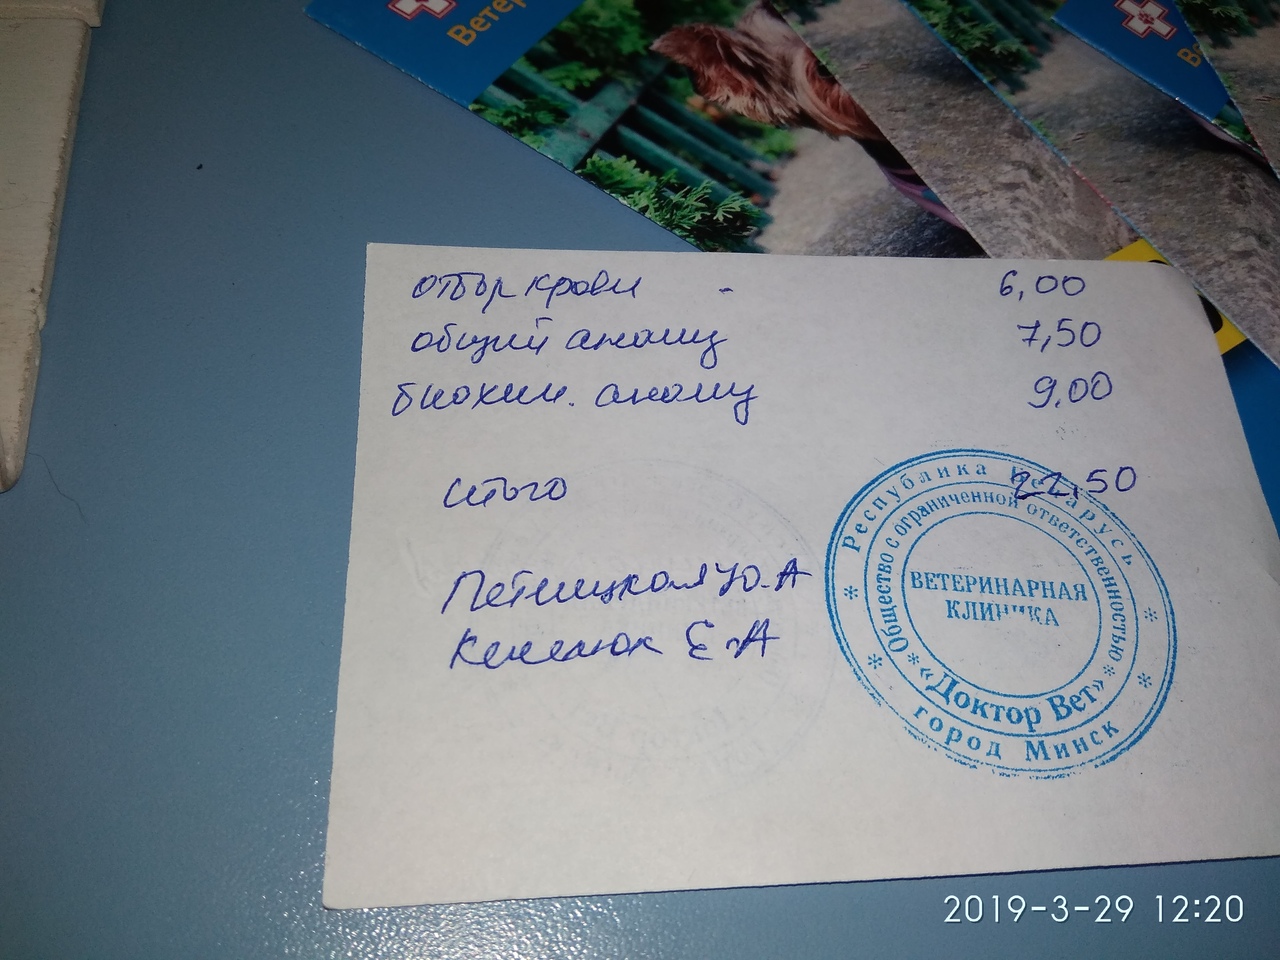 Ветер
Ве
отбор крови - 6,00
общий анализ 7,50
биохим. анализ 9,00
итого 22,50
Ю.А
Е.А
Республика Беларусь
Общество с ограниченной ответственностью
ВЕТЕРИНАРНАЯ
КЛИНИКА
«Доктор Вет»
город Минск
2019-3-29 12:20